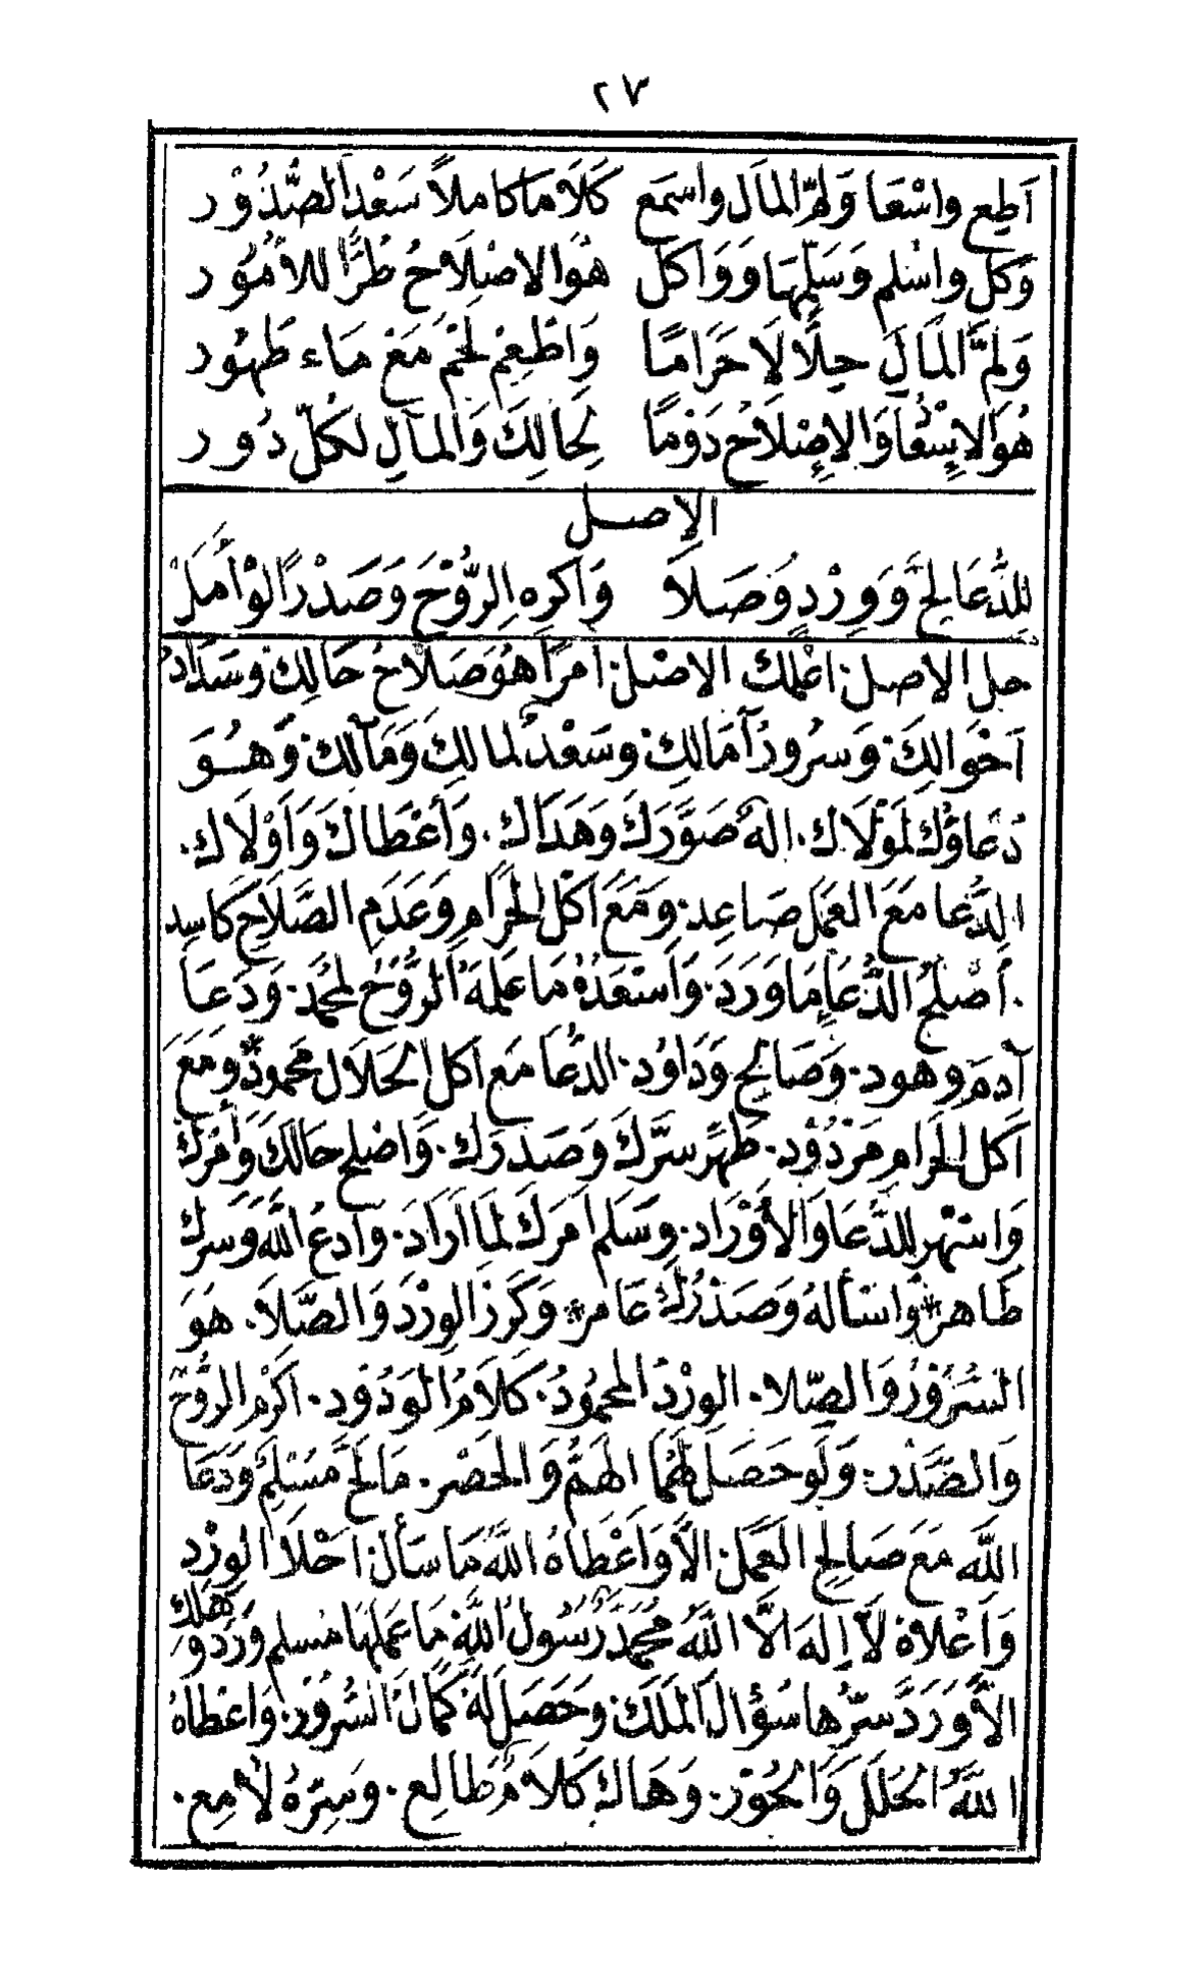 ٢٧
اَطِع واسْعَا وَلُمّ المَال واسمَع كَلَامَا كاملاً سَعْد الصُّدُوْر
وَكل واسْلم وَسَلِّمهَا وَوَاكل هُوَ الاصْلَاحُ طُرًّا للأُمُوُر
وَلمَّ المَالَ حِلًّا لَا حَرَامًا وَاطْعِمْ لَحْمَ مَعْ مَاء طَهُور
هُوَ الاِسْعَا وَالاِصْلَاحُ دَوْمًا لِحَالِكَ وَالمآلِ لكُلّ دُور
الاصل
لِلدُّعَا لحَّ وَوِرْدٍ وَصَلاَ وَاكرِهِ الرُّوْحَ وَصَدْرًا لوْ أُمَلْ
حل الاصل: اعْلمك الاصْل: امرًا هُوَ صَلَاحُ حَالِك وسَدَادُ
اَحْوَالِكَ. وَسرُورُ آمَالِك. وسَعْدٌ لمالِك وَمَآلِك. وَهُوَ
دُعَاؤُك لمَوْلَاك. الهٌ صَوَّرَكَ وَهَدَاك. وَأَعْطَاكَ وَاَوْلَاك.
الدُّعَا مَعَ العَمَل صَاعِد. وَمَعَ اَكْل الحَرَامِ وَعَدَمِ الصَّلَاحِ كَاسِد
. أَصْلَحُ الدُّعَا مَا وَرَدَ. وَاَسْعَدُهُ مَا عَلمَهُ الرُّوحُ لمحُمَد. وَدَعَا
آدمَ وهُود. وَصَالِح وَدَاوُد. الدُّعَا مَع اكل الحَلَال محَمودٌ وَمَعَ
اَكل الحَرامِ مَرْدُوْد. طَهِّر سرَّكَ وَصَدرَك. وَاصْلح حَالكَ وَأَمْرَكَ
وَاسْهَر للدُّعَا وَالأَوْرَاد. وسَلم اَمرَكَ لمَا اَرَادَ. وادعُ اللَّهَ وَسرّك
طَاهر * وَاسْأَلهُ وَصَدْرُكَ عَامر * وَكَرِّر الوِرْدَ وَالصَّلَا. هوَ
السُّرُوْرُ وَالصِّلا. الوِرْدُ المحمُودُ. كَلَامُ الوَدُود. اكرم الرُّوْحَ
وَالصَّدْر. وَلَو حَصَل لَهُمَا الهَمُّ وَالحَصْر. مَا لحَّ مُسْلِمٌ وَدَعَا
اللَّه مَعَ صَالِح العَمَل. الّا وَاَعْطَاهُ اللَّهُ مَا سَأل. اَحْلَا الوِرْدِ
وَاَعْلَاهُ لَا إلهَ الّا اللَّهُ محُمَّدٌ رَسُولُ اللَّهِ مَا عَمَلهَا مُسلم وَرَدُؤَ هَلك
الّا وَرَدَّ سرُّها سُؤالَ المَلَك. وَحَصَل لَهُ كَمَالُ السُّرُوْر. وَاعْطَاهُ
اللَّهُ الحُلَل وَالحُوْر. وَهَاك كَلَامٌ طَالِع. وَسرّهُ لَامِع.